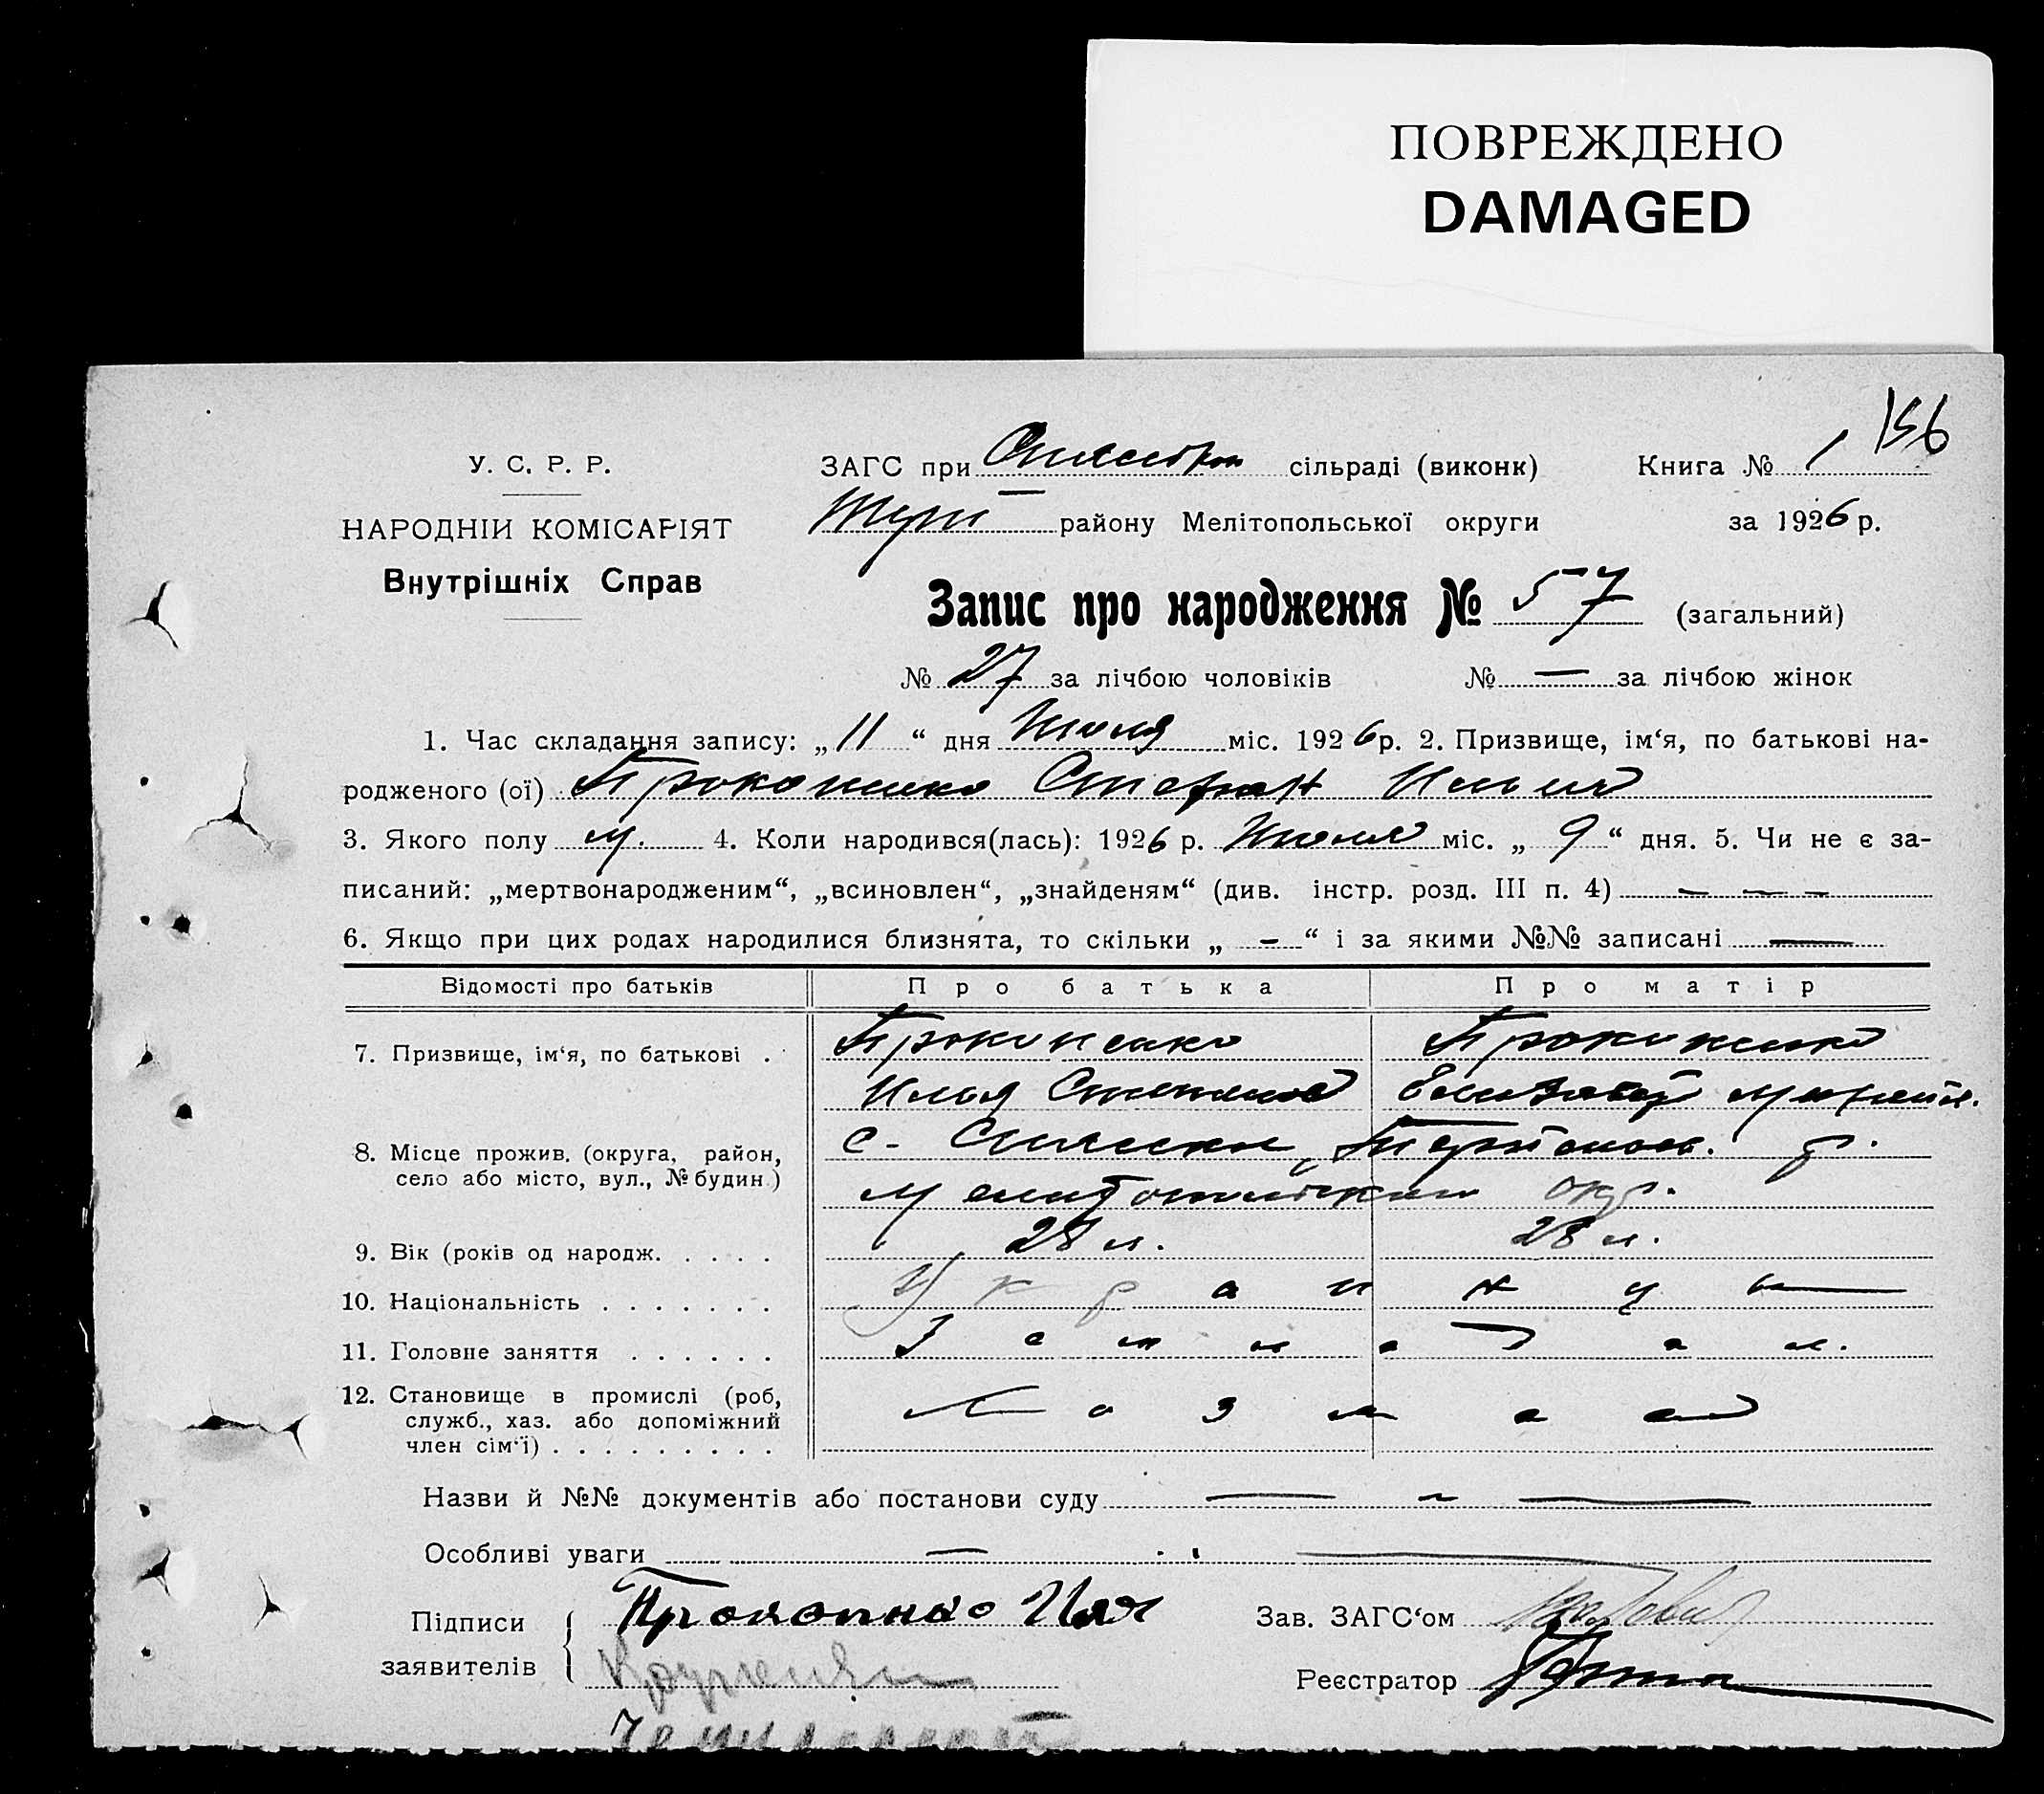 ПОВРЕЖДЕНО
DAMAGED
156
У. С. Р. Р.
ЗАГС при сільраді (виконк) Книга № 1
НАРОДНІЙ КОМІСАРІЯТ
району Мелітопольської округи за 1926 р.
Внутрішніх Справ
Запис про народження № 57 (загальний)
№ 27 за лічбою чоловіків № — за лічбою жінок
1. Час складання запису: „ 11 “ дня Июля міс. 1926 р. 2. Призвище, ім‘я, по батькові на-
родженого (ої) Прокопенко Стефан Ильич
3. Якого полу м. 4. Коли народився(лась): 1926 р. Июля міс. „ 9 “ дня. 5. Чи не є за-
писаний: „мертвонародженим“, „всиновлен“, „знайденям“ (див. інстр. розд. III п. 4) — — —
6. Якщо при цих родах народилися близнята, то скільки „ - “ і за якими №№ записані —
Відомості про батьків Про батька Про матір
7. Призвище, ім‘я, по батькові . Прокопенко Прокопенко
Илья Степанов Елизавет
8. Місце прожив. (округа, район, с.
село або місто, вул., № будин.) Мелитопольской окр.
9. Вік (років од народж. . . . . 28 л. 28 л.
10. Національність . . . . . . . Украинцы
11. Головне заняття . . . . . . Землед
12. Становище в промислі (роб,
служб., хаз. або допоміжний Хозяева
член сім‘ї) . . . . . . . . .
Назви й №№ документів або постанови суду — - —
Особливі уваги — —
Підписи Прокопенко Иля Зав. ЗАГС‘ом
заявителів Реєстратор